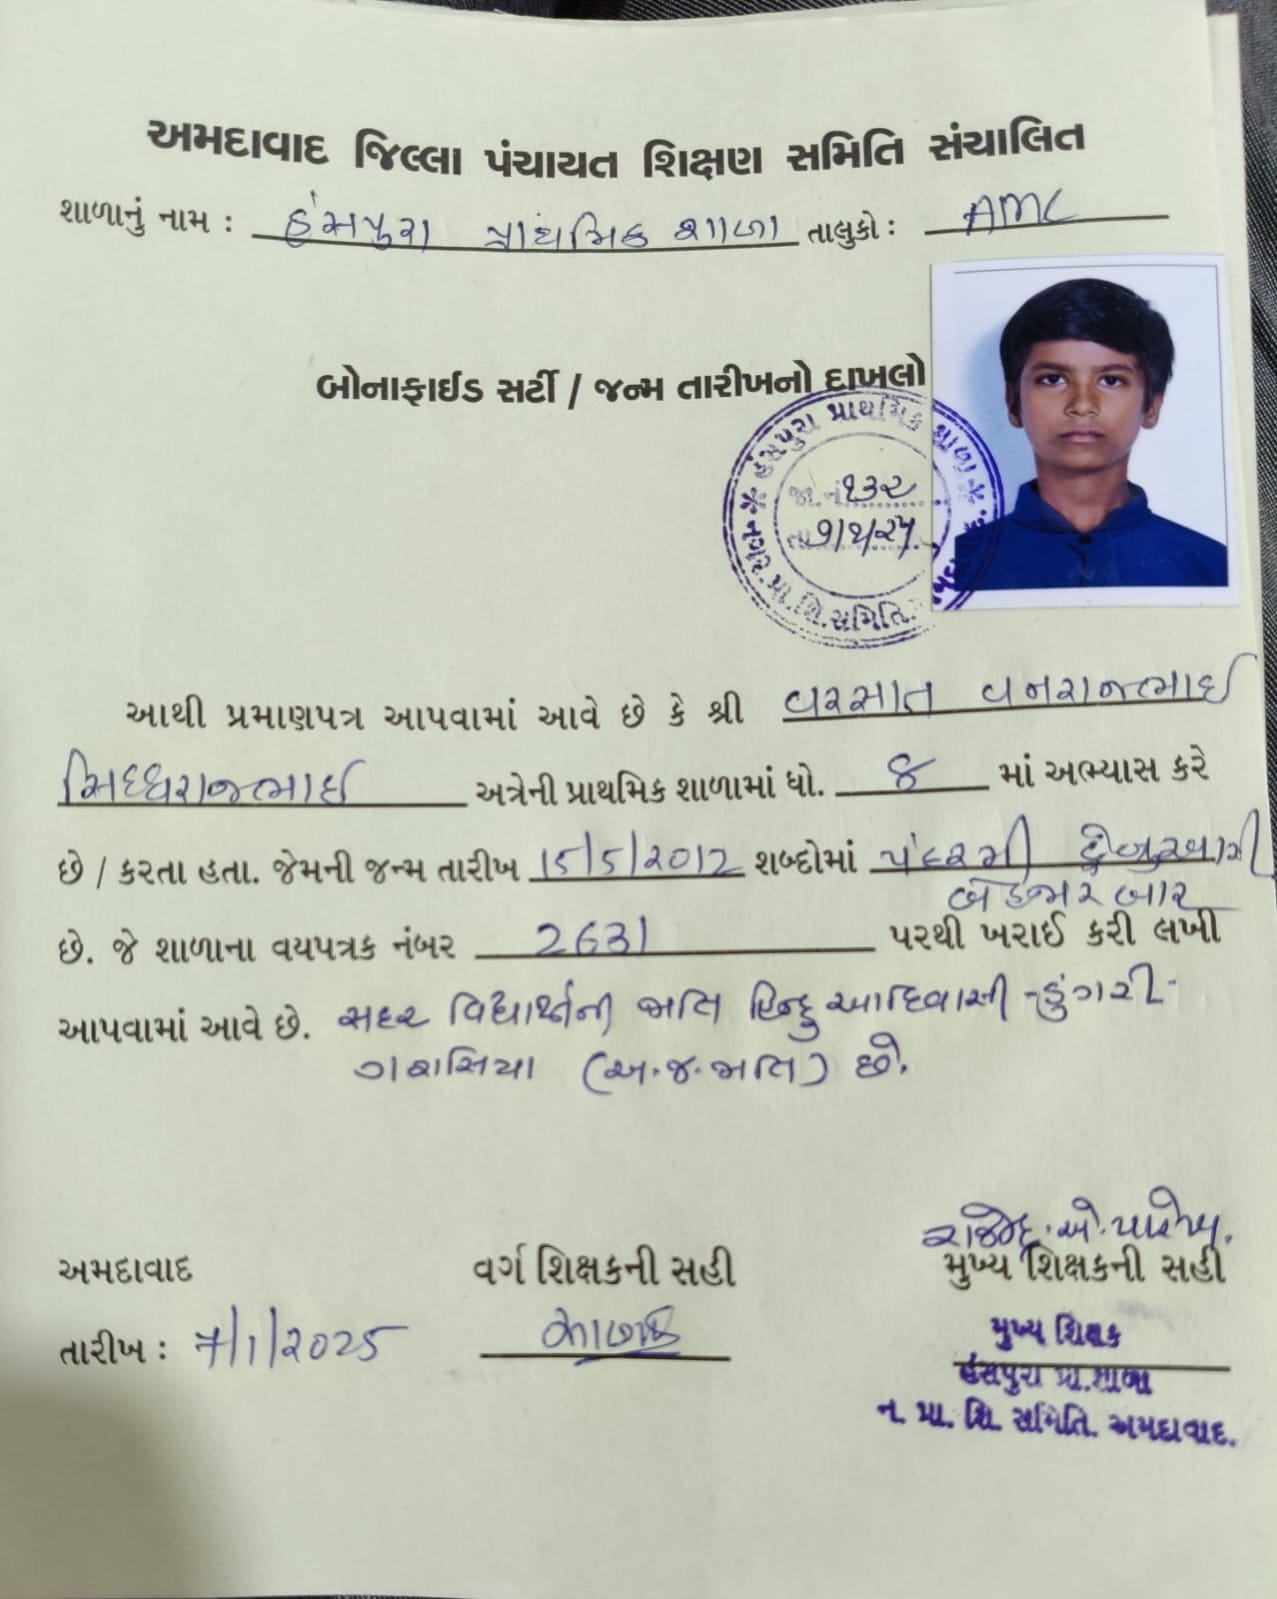 અમદાવાદ જિલ્લા પંચાયત શિક્ષણ સમિતિ સંચાલિત
શાળાનું નામ : હંસપુરા પ્રાથમિક શાળા તાલુકો : AMC
બોનાફાઈડ સર્ટી / જન્મ તારીખનો દાખલો
હંસપુરા પ્રાથમિક શાળા
જા.નં ૧૩૨
તા. ૭/૧/૨૫
શિ. સમિતિ.
આથી પ્રમાણપત્ર આપવામાં આવે છે કે શ્રી વરસાત વનરાજભાઈ
સિધ્ધરાજભાઈ અત્રેની પ્રાથમિક શાળામાં ધો. ૪ માં અભ્યાસ કરે
છે / કરતા હતા. જેમની જન્મ તારીખ 15/5/2012 શબ્દોમાં પંદરમી
બે હજાર બાર
છે. જે શાળાના વયપત્રક નંબર 2631 પરથી ખરાઈ કરી લખી
આપવામાં આવે છે. સદર વિદ્યાર્થીની જાતિ હિન્દુ આદિવાસી ડુંગરી
ગરાસિયા (અ.જ.જાતિ) છે.
રાજેન્દ્ર. એ. પારેખ.
અમદાવાદ વર્ગ શિક્ષકની સહી મુખ્ય શિક્ષકની સહી
તારીખ : 7/1/2025
મુખ્ય શિક્ષક
હંસપુરા પ્રા.શાળા
ન. પ્રા. શિ. સમિતિ. અમદાવાદ.